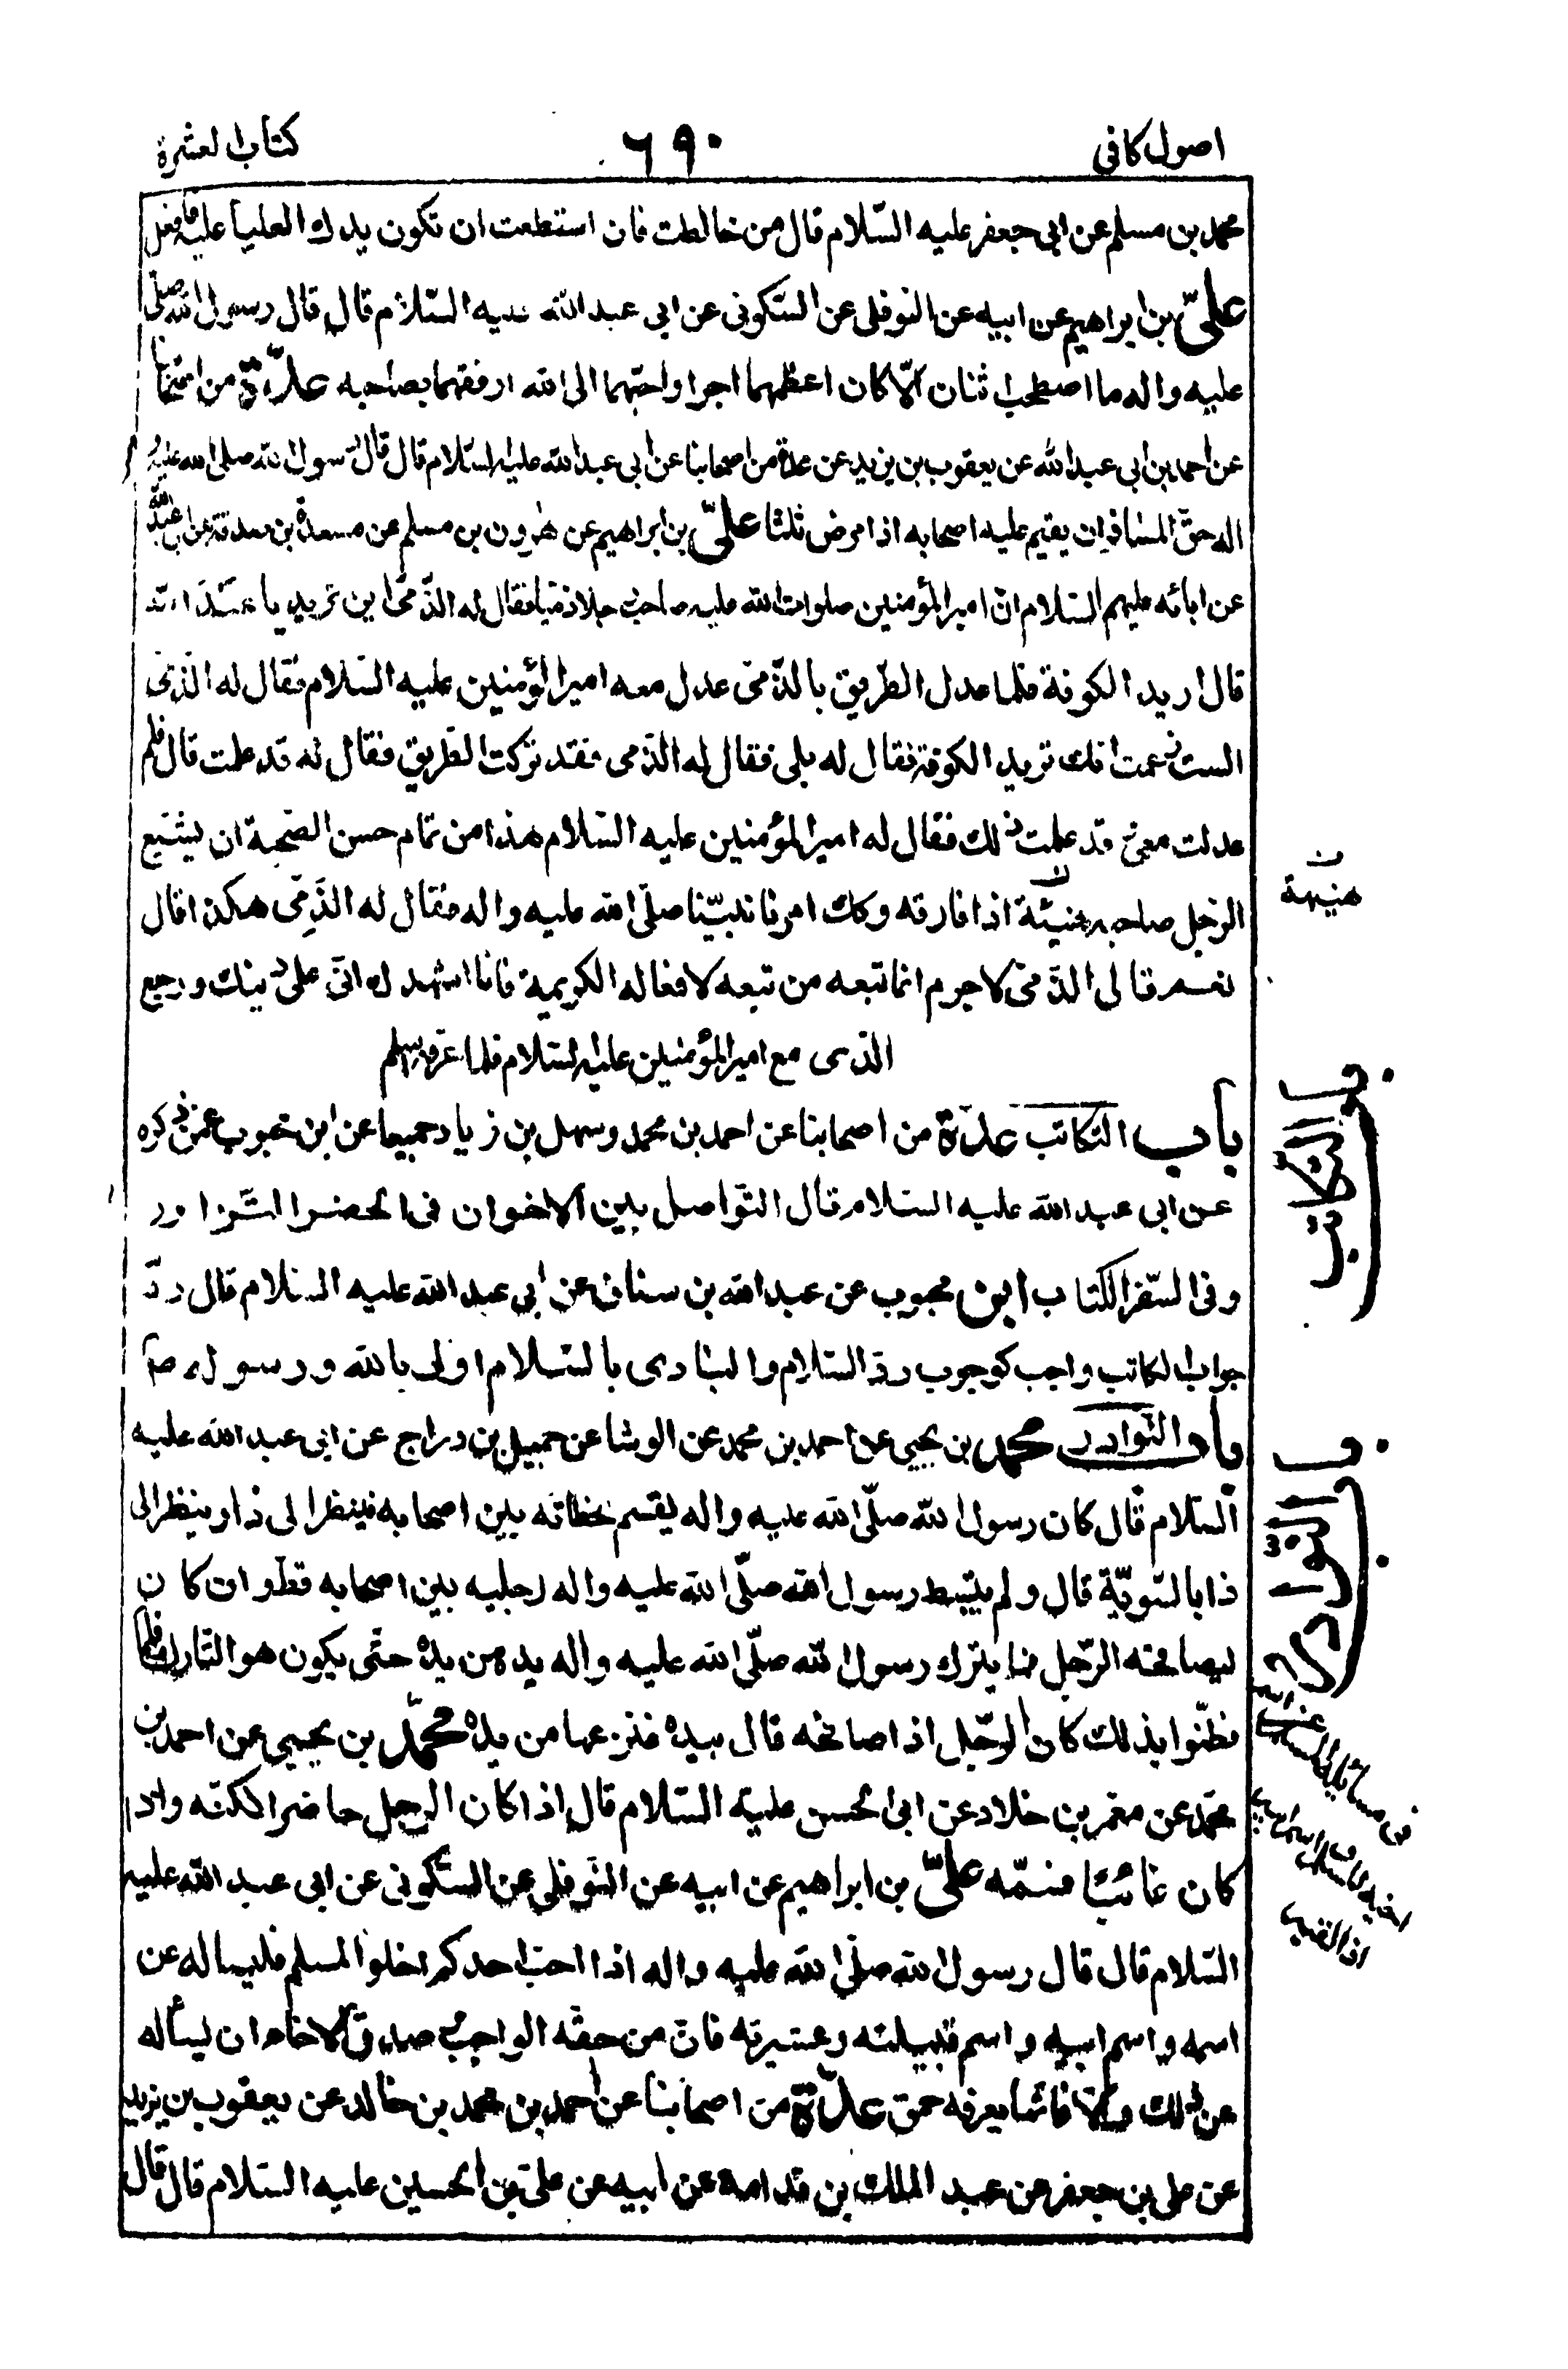 اصول كافى
٦٩٠
كتاب العشرة
محمد بن مسلم عن ابى جعفر عليه السّلام قال من خالطت فان استطعت ان تكون يدك العليا عليه فافعل
علىّ بن ابراهيم عن ابيه عن النوفلى عن السّكونى عن ابى عبد الله عليه السّلام قال قال رسول الله صلى
عليه واله ما اصطحب اثنان الّا كان اعظمهما اجرا واحبّهما الى الله ارفقهما بصاحبه عدّة من اصحابنا
عن احمد بن ابى عبد الله عن يعقوب بن يزيد عن عدة من اصحابنا عن ابى عبد الله عليه السّلام قال قال رسول الله صلى الله عليه و
اله حقّ المسافر ان يقيم عليه اصحابه اذا مرض ثلثا علىّ بن ابراهيم عن هٰرون بن مسلم عن مسعدة بن صدقة عن ابى عبد الله
عن ابائه عليهم السّلام انّ امير المؤمنين صلوات الله عليه صاحب رجلا ذمّيا فقال له الذّمّى اين تريد يا عبد الله
قال اريد الكوفة فلما عدل الطّريق بالذّمّى عدل معه امير المؤمنين عليه السّلام فقال له الذمّى
الست زعمت انك تريد الكوفة فقال له بلى فقال له الذّمى فقد تركت الطّريق فقال له قد علمت قال فلم
عدلت معى وقد علمت ذلك فقال له امير المؤمنين عليه السّلام هذا من تمام حسن الصّحبة ان يشيّع
الرّجل صاحبه هنيئة اذا فارقه وكك امرنا نبيّنا صلّى الله عليه واله فقال له الذّمّى هكذا قال
نعم قال الذّمّى لا جرم انما تبعه من تبعه لافعاله الكريمة فانا اشهدك انّى على دينك ورجع
الذمى مع امير المؤمنين عليه السّلام فلما عرفه اسلم
باب التكاتب عدّة من اصحابنا عن احمد بن محمد وسهل بن زياد جميعا عن ابن محبوب عمّن ذكره
عن ابى عبد الله عليه السّلام قال التّواصل بين الاخوان فى الحضر التّزاور
وفى السّفر الكتاب ابن محبوب عن عبد الله بن سنان عن ابى عبد الله عليه السّلام قال ردّ
جواب الكاتب واجب كوجوب ردّ السّلام والبادى بالسّلام اولى بالله ورسوله ص
باب النّوادر محمد بن يحيى عن احمد بن محمد عن الوشا عن جميل بن دراج عن ابى عبد الله عليه
السّلام قال كان رسول الله صلّى الله عليه واله يقسم لحظاته بين اصحابه فينظر الى ذا وينظر الى
ذا بالسّويّة قال ولم يبسط رسول الله صلّى الله عليه واله رجليه بين اصحابه قطّ وان كان
ليصافحه الرّجل فما يترك رسول الله صلّى الله عليه واله يده من يده حتّى يكون هو التّارك فلمّا
فطنوا بذلك كان الرّجل اذا صافحه قال بيده فنزعها من يده محمّد بن يحيى عن احمد بن
محمّد عن معمر بن خلاد عن ابى الحسن عليه السّلام قال اذا كان الرجل حاضرا فكنّه واذا
كان غائبا فسمّه علىّ بن ابراهيم عن ابيه عن النّوفلى عن السّكونى عن ابى عبد الله عليه
السّلام قال قال رسول الله صلّى الله عليه واله اذا احبّ احدكم اخاه المسلم فليساله عن
اسمه واسم ابيه واسم قبيلته وعشيرته فانّ من حقّه الواجب وصدق الاخاء ان يسأله
عن ذلك والّا فانّها معرفة حمق عدّة من اصحابنا عن احمد بن محمد بن خالد عن يعقوب بن يزيد
عن على بن جعفر عن عبد الملك بن قدامة عن ابيه عن علىّ بن الحسين عليه السّلام قال قال
هنيهة
ف التكاتب
ف النوادر